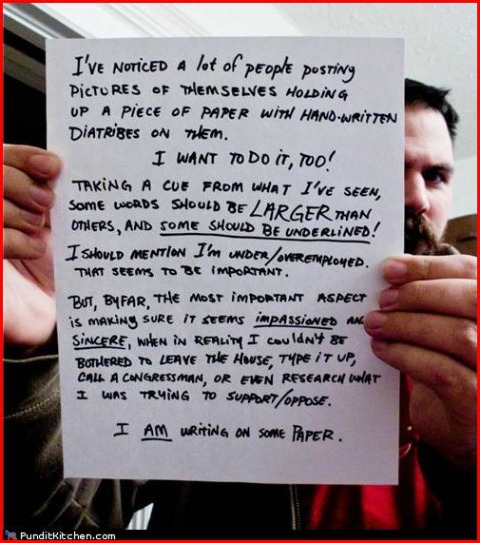 I'VE NOTICED A lot of people posting
PICTURES OF THEMSELVES HOLDING
UP A PIECE OF PAPER WITH HAND-WRITTEN
DIATRIBES ON THEM.
I WANT TO DO IT, TOO!
TAKING A CUE FROM WHAT I'VE SEEN,
SOME WORDS SHOULD BE LARGER THAN
OTHERS, AND SOME SHOULD BE UNDERLINED!
I SHOULD MENTION I'M UNDER/OVEREMPLOYED.
THAT SEEMS TO BE IMPORTANT.
BUT, BY FAR, THE MOST IMPORTANT ASPECT
IS MAKING SURE IT SEEMS IMPASSIONED
SINCERE, WHEN IN REALITY I COULDN'T BE
BOTHERED TO LEAVE THE HOUSE, TYPE IT UP,
CALL A CONGRESSMAN, OR EVEN RESEARCH WHAT
I WAS TRYING TO SUPPORT/OPPOSE.
I AM WRITING ON SOME PAPER.
PunditKitchen.com